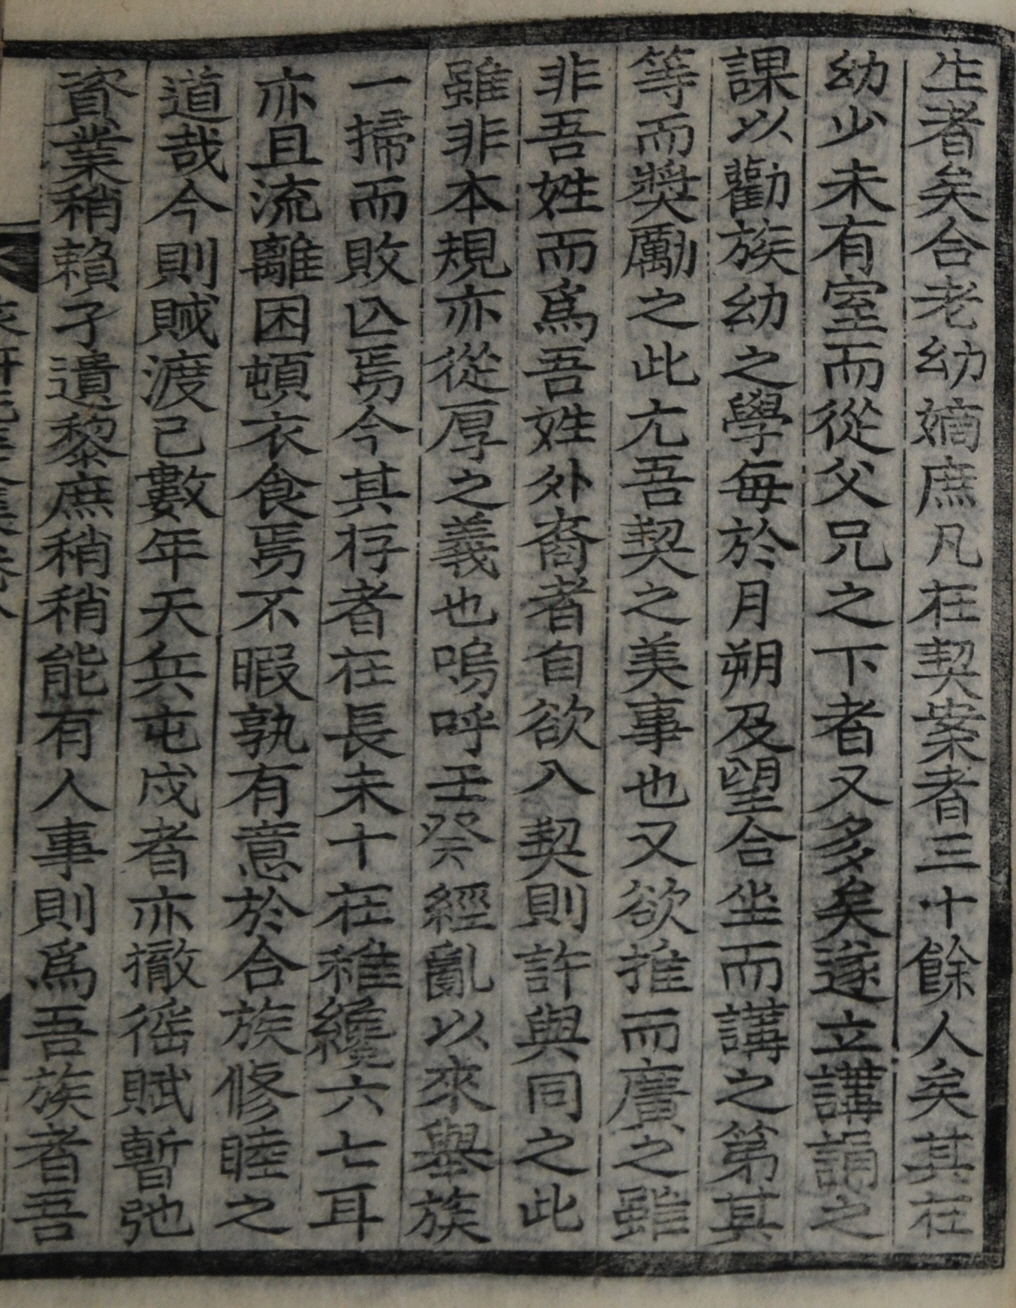 生者矣合老幼嫡庶凡在契案者三十餘人矣其在
幼少未有室而從父兄之下者又多矣遂立講誦之
課以勸族幼之學每於月朔及望合坐而講之第其
等而奬勵之此尤吾契之美事也又欲推而廣之雖
非吾姓而爲吾姓外裔者自欲入契則許與同之此
雖非本規亦從厚之義也嗚呼壬癸經亂以來擧族
一掃而敗亾焉今其存者在長未十在稚纔六七耳
亦且流離困頓衣食焉不暇孰有意於合族修睦之
道哉今則賊渡已數年天兵屯戍者亦撤徭賦暫弛
資業稍賴孑遺黎庶稍稍能有人事則爲吾族者吾